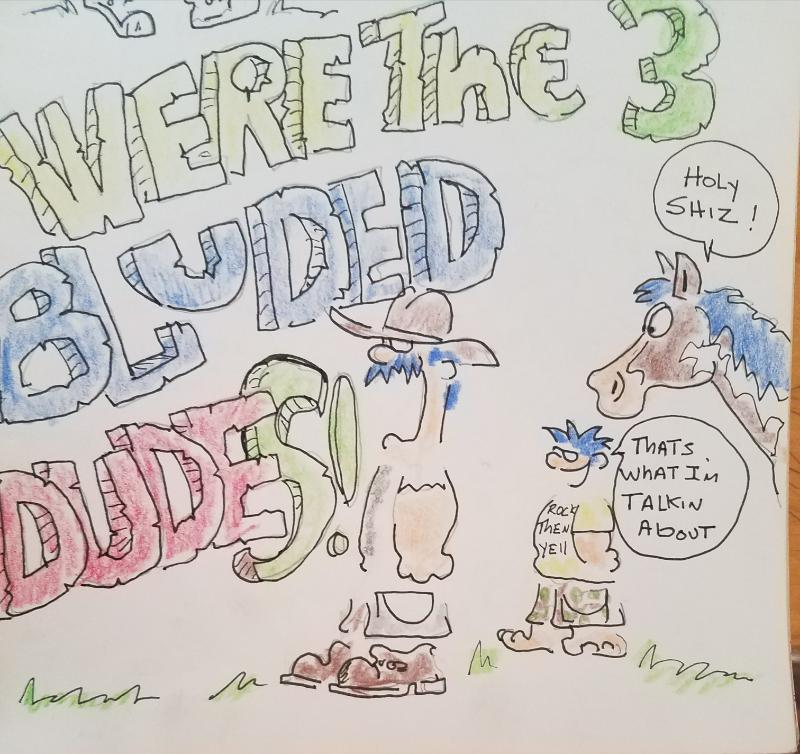 WERE The 3
BLUDED
DUDES!
HOLY
SHIZ!
THATS
WHAT Im
TALKIN
About
ROCK
THEN
YEll